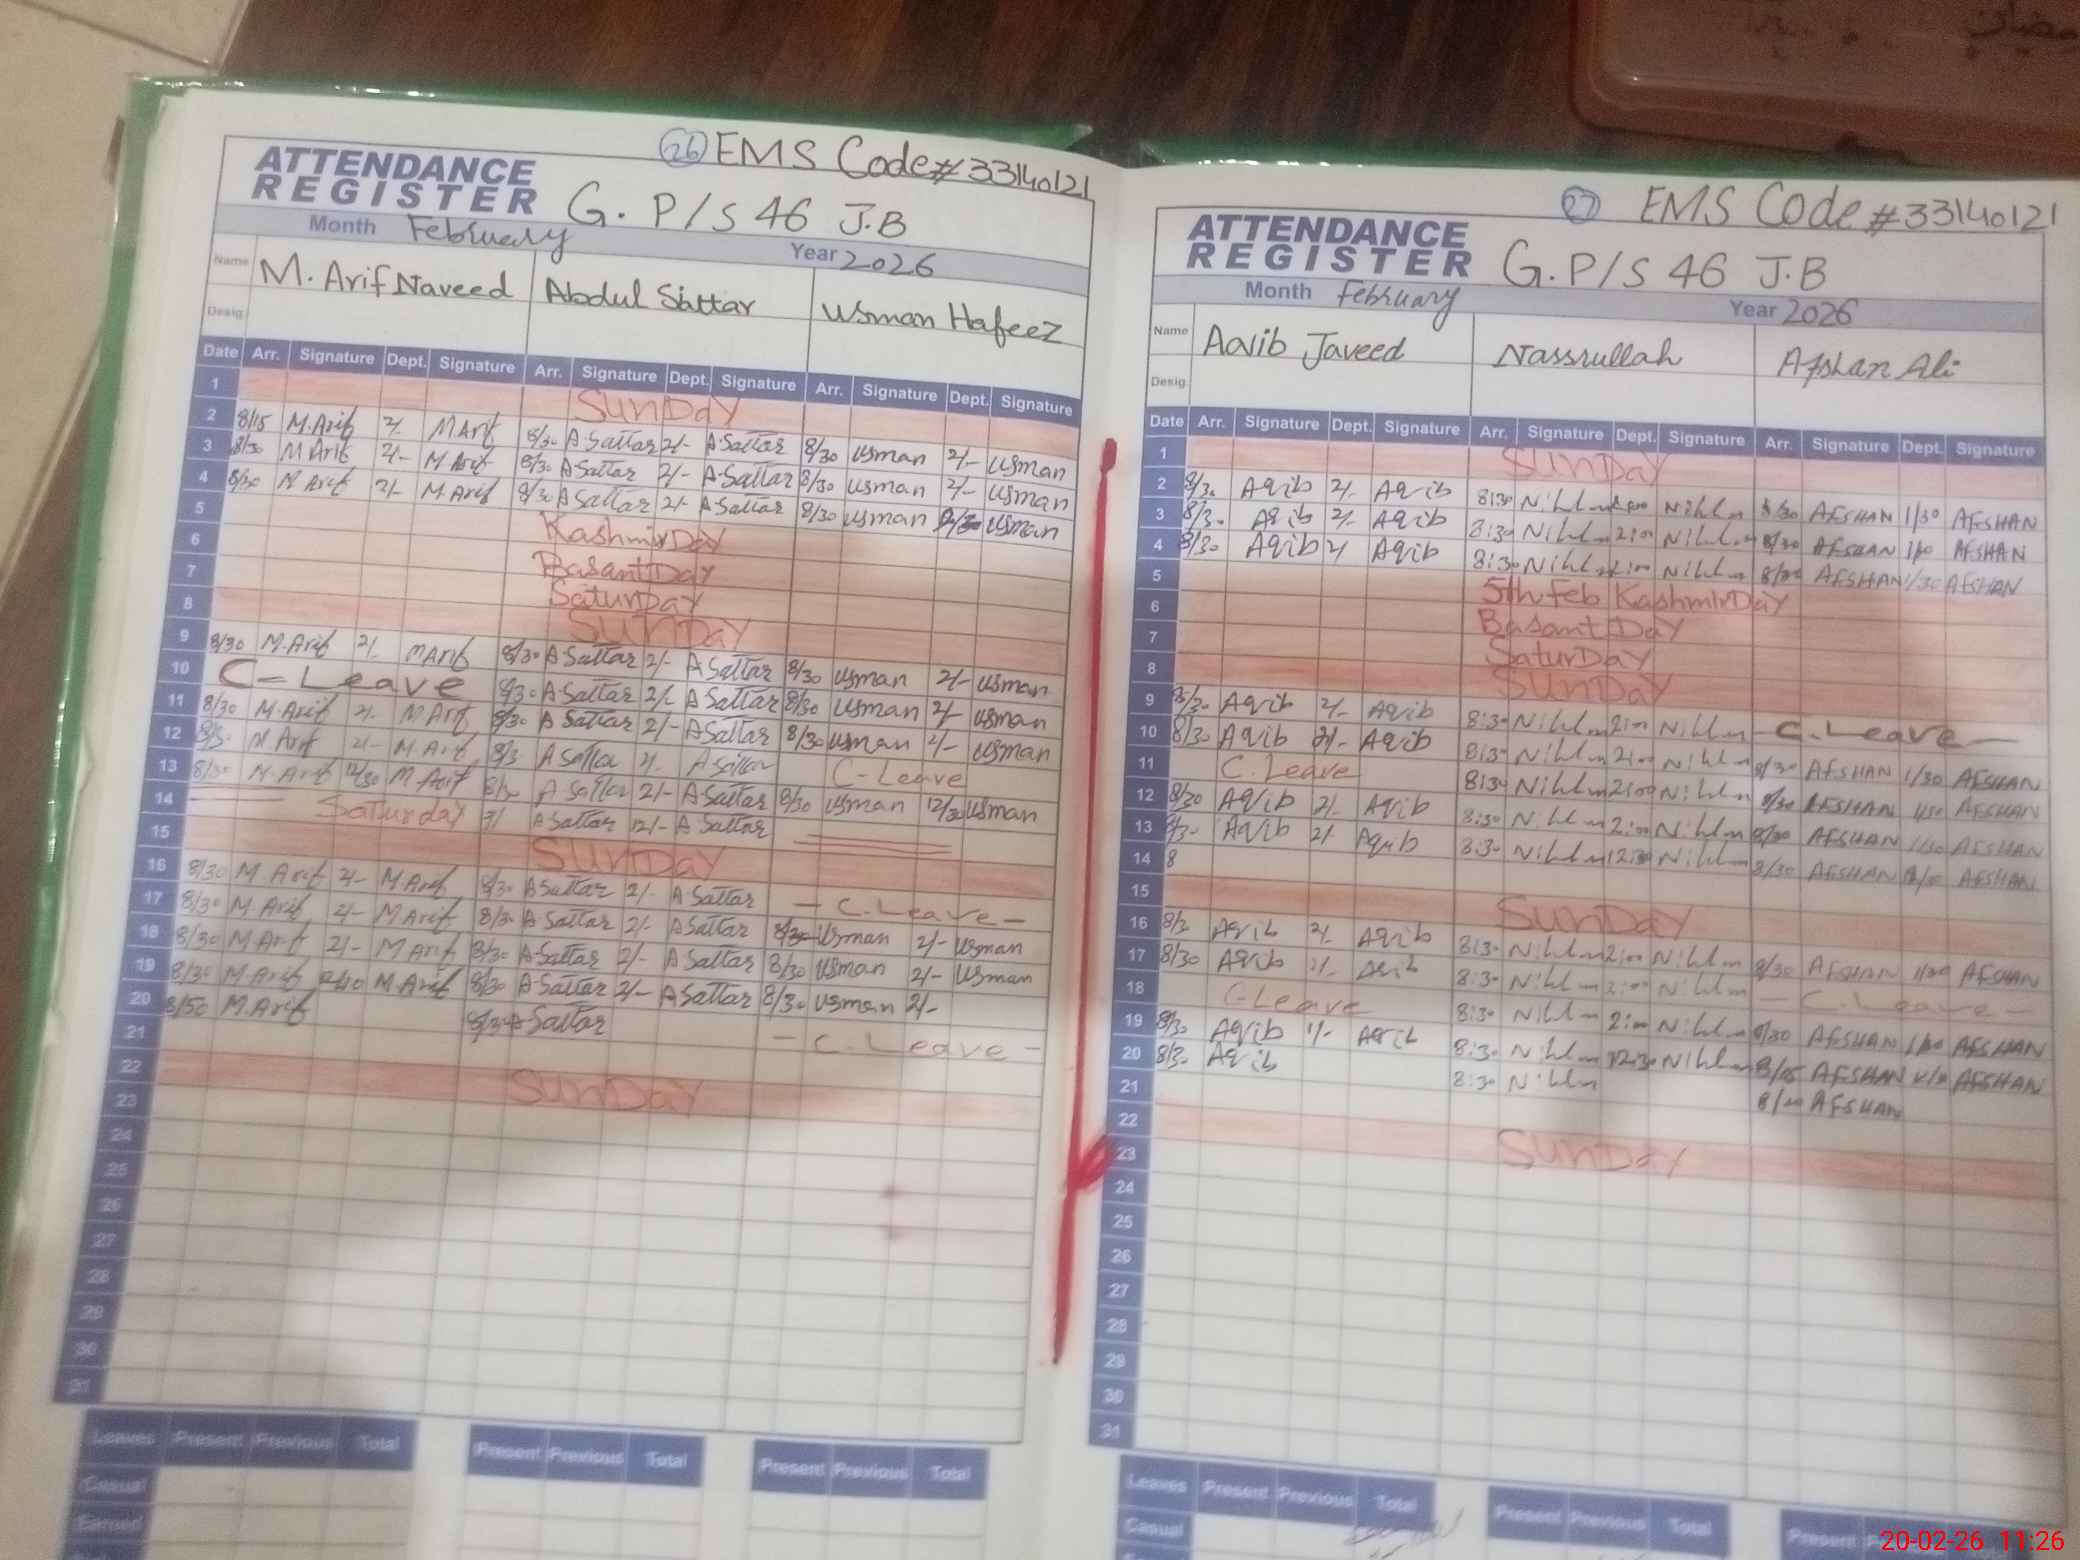 رمضان
26 EMS Code# 33140121
ATTENDANCE
REGISTER G. P/S 46 J.B
Month February Year 2026
Name M. Arif Naveed Abdul Sattar Usman Hafeez
Desig.
Date Arr. Signature Dept. Signature Arr. Signature Dept. Signature Arr. Signature Dept. Signature
1 SUNDAY
2 8/15 M.Arif 2/- M Arif 8/30 A.Sattar 2/- A.Sattar 8/30 usman 2/- usman
3 8/30 M Arif 2/- M Arif 8/30 A Sattar 2/- A.Sattar 8/30 usman 2/- usman
4 8/30 M Arif 2/- M.Arif 8/30 A Sattar 2/- A Sattar 8/30 usman usman
5 Kashmir Day
6 Basant Day
7 Saturday
8 SUNDAY
9 8/30 M.Arif 2/- M Arif 8/30 A Sattar 2/- A Sattar 8/30 usman 2/- usman
10 C-Leave 8/30 A.Sattar 2/- A Sattar 8/30 usman 2/- usman
11 8/30 M.Arif 2/- M Arif 8/30 A Sattar 2/- A Sattar 8/30 usman 2/- usman
12 8/30 M Arif 2/- M.Arif 8/3 A Sattar 2/- A Sattar C-Leave
13 8/30 M.Arif 12/30 M Arif 8/30 A Sattar 2/- A Sattar 8/30 usman 12/30 usman
14 Saturday A Sattar 12/- A Sattar
15 SUNDAY
16 8/30 M Arif 2/- M.Arif 8/30 A Sattar 2/- A Sattar - C.Leave -
17 8/30 M Arif 2/- M Arif 8/30 A Sattar 2/- A Sattar 8/30 usman 2/- usman
18 8/30 M Arif 2/- M Arif 8/30 A.Sattar 2/- A Sattar 8/30 usman 2/- usman
19 8/30 M Arif M Arif 8/30 A Sattar 2/- A Sattar 8/30 usman 2/-
20 8/30 M.Arif 8/30 A Sattar - C.Leave -
21
22 SUNDAY
23
24
25
26
27
28
29
30
31
Leaves Present Previous Total Present Previous Total Present Previous Total
Casual
Earned
27 EMS Code # 33140121
ATTENDANCE
REGISTER G.P/S 46 J.B
Month February Year 2026
Name Aqib Javeed Nassrullah Afshan Ali
Desig.
Date Arr. Signature Dept. Signature Arr. Signature Dept. Signature Arr. Signature Dept. Signature
1 SUNDAY
2 8/30 Aqib 2/- Aqib 8:30 8/30 AFSHAN 1/30 AFSHAN
3 8/30 Aqib 2/- Aqib 8:30 2:00 8/30 AFSHAN AFSHAN
4 8/30 Aqib 2/ Aqib 8:30 AFSHAN 1/30 AFSHAN
5 5th Feb Kashmir Day
6 Basant Day
7 Saturday
8 SUNDAY
9 8/30 Aqib 2/- Aqib 8:30 2:00 - C.Leave -
10 8/30 Aqib 2/- Aqib 8:30 2:00 8/30 AFSHAN 1/30 AFSHAN
11 C.Leave 8:30 2:00 8/30 AFSHAN AFSHAN
12 8/30 Aqib 2/- Aqib 8:30 2:00 8/30 AFSHAN AFSHAN
13 8/30 Aqib 2/- Aqib 8:30 12:30 8/30 AFSHAN AFSHAN
14 8
15 SUNDAY
16 8/3 Aqib 2/- Aqib 8:30 2:00 8/30 AFSHAN 1/30 AFSHAN
17 8/30 Aqib 2/- Aqib 8:30 2:00 - C.Leave -
18 C-Leave 8:30 2:00 8/30 AFSHAN AFSHAN
19 8/30 Aqib 1/- Aqib 8:30 12:30 AFSHAN AFSHAN
20 8/30 Aqib 8:30 AFSHAN
21
22 SUNDAY
23
24
25
26
27
28
29
30
31
Leaves Present Previous Total Present Previous Total Present
Casual
20-02-26 11:26